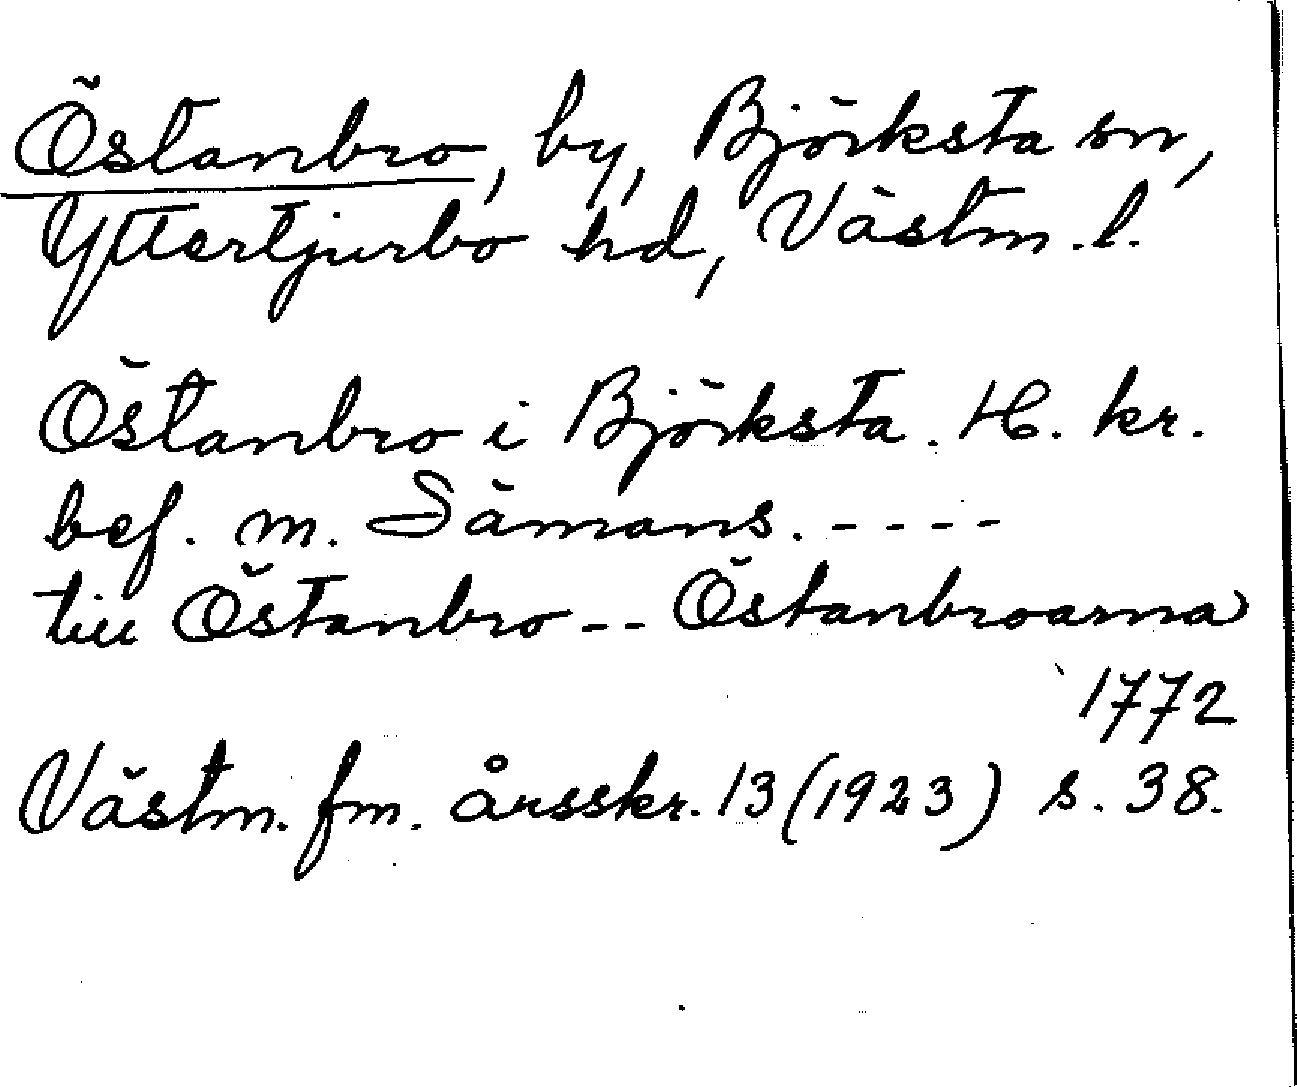 Östanbro, by, Björksta sn,
Yttertjurbo hd, Västm. l.
Östanbro i Björksta. H. kr.
bef. m. Sämans. - - - -
till Östanbro -- Östanbroarna
1772
Västm. fm. årsskr. 13 (1923) s. 38.